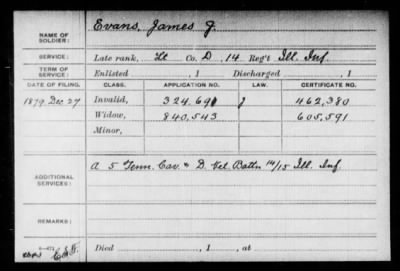 NAME OF SOLDIER: Evans, James J.
SERVICE: Late rank, Lt Co. D, 14 Reg't Ill. Inf.
TERM OF SERVICE: Enlisted , 1 Discharged , 1
DATE OF FILING. CLASS. APPLICATION NO. LAW. CERTIFICATE NO.
1879, Dec. 27 Invalid, 324.691 J 462,380
Widow, 840,543 605,591
Minor,
ADDITIONAL SERVICES: A 5 Tenn. Cav. & D. Vet. Battn 14/15 Ill. Inf.
REMARKS:
Died , 1 , at